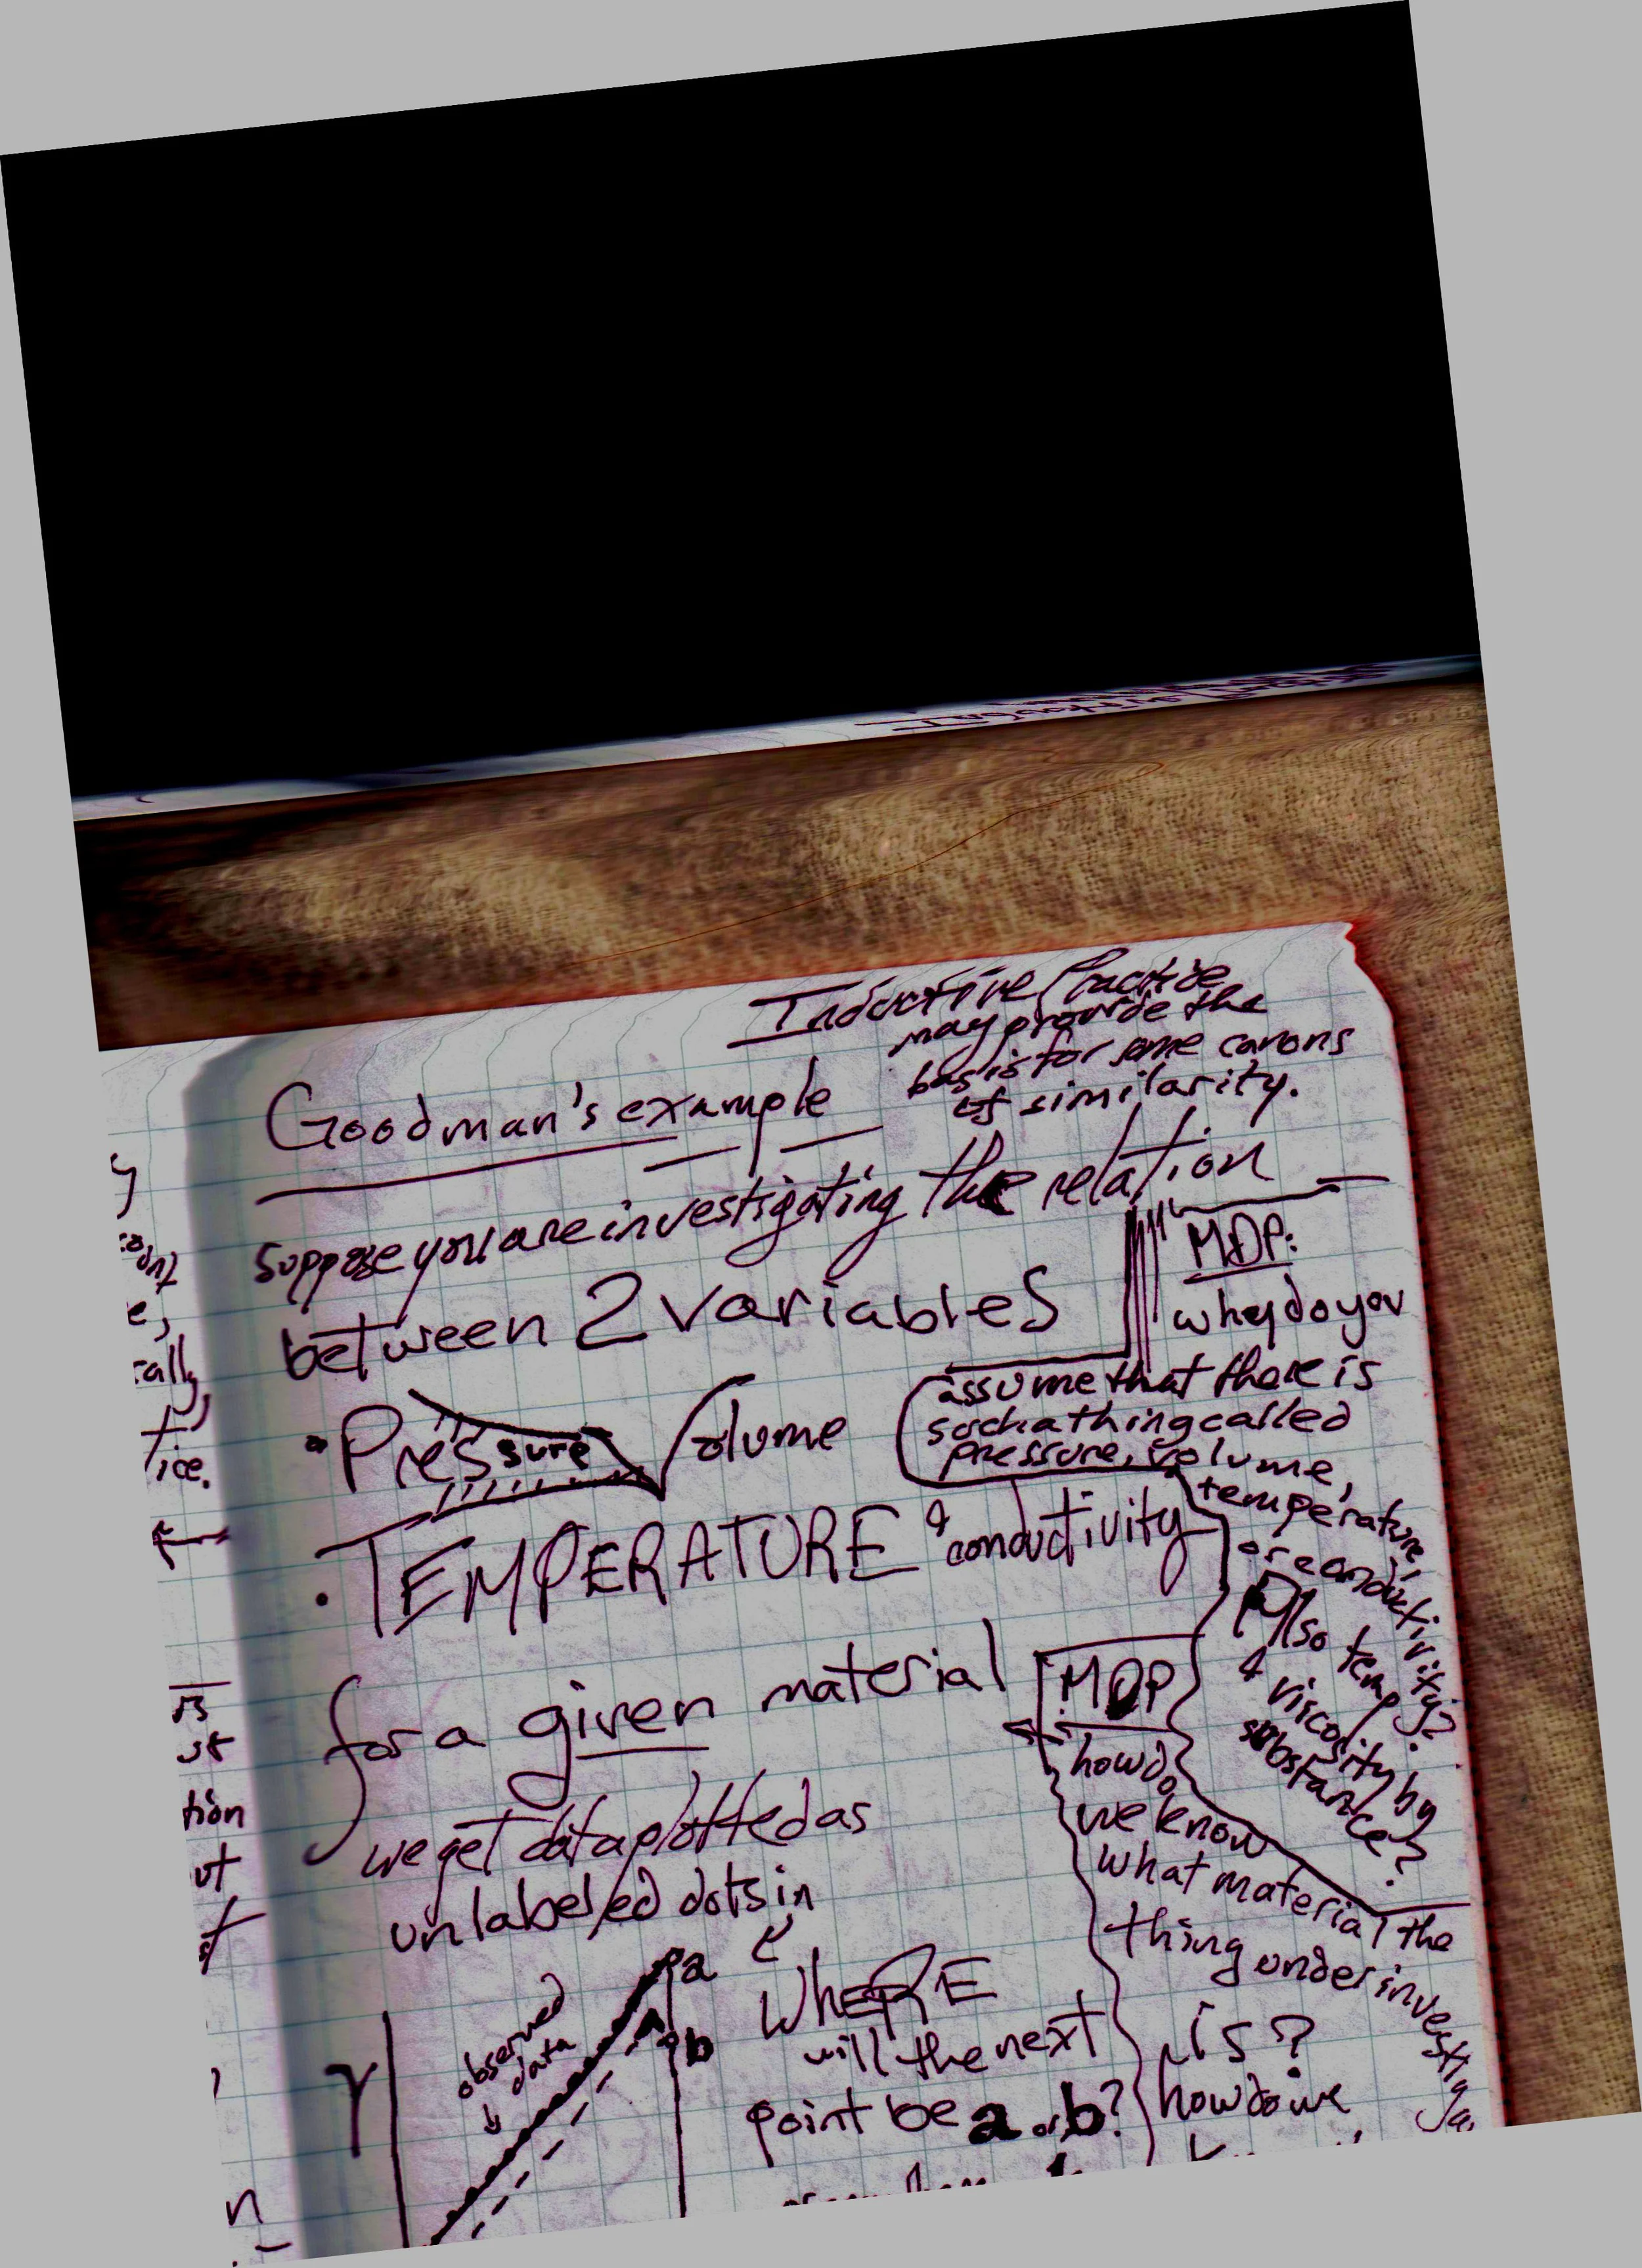 Inductive Practice
may provide the
basis for some canons
of similarity.
Goodman's example
suppose you are investigating the relation
between 2 variables
• Pressure Volume
• TEMPERATURE & conductivity
for a given material
we get data plotted as
unlabeled dots in
WhERE
will the next
point be a or b?
a
b
observed
data
Y
MDP:
why do you
assume that there is
such a thing called
pressure, volume,
temperature,
or conductivity?
Also temp.
& viscosity by
substance?
MDP
how do
we know
what material the
thing under investiga
is?
how do we
e,
cally,
tice.
tion
ut
st
n